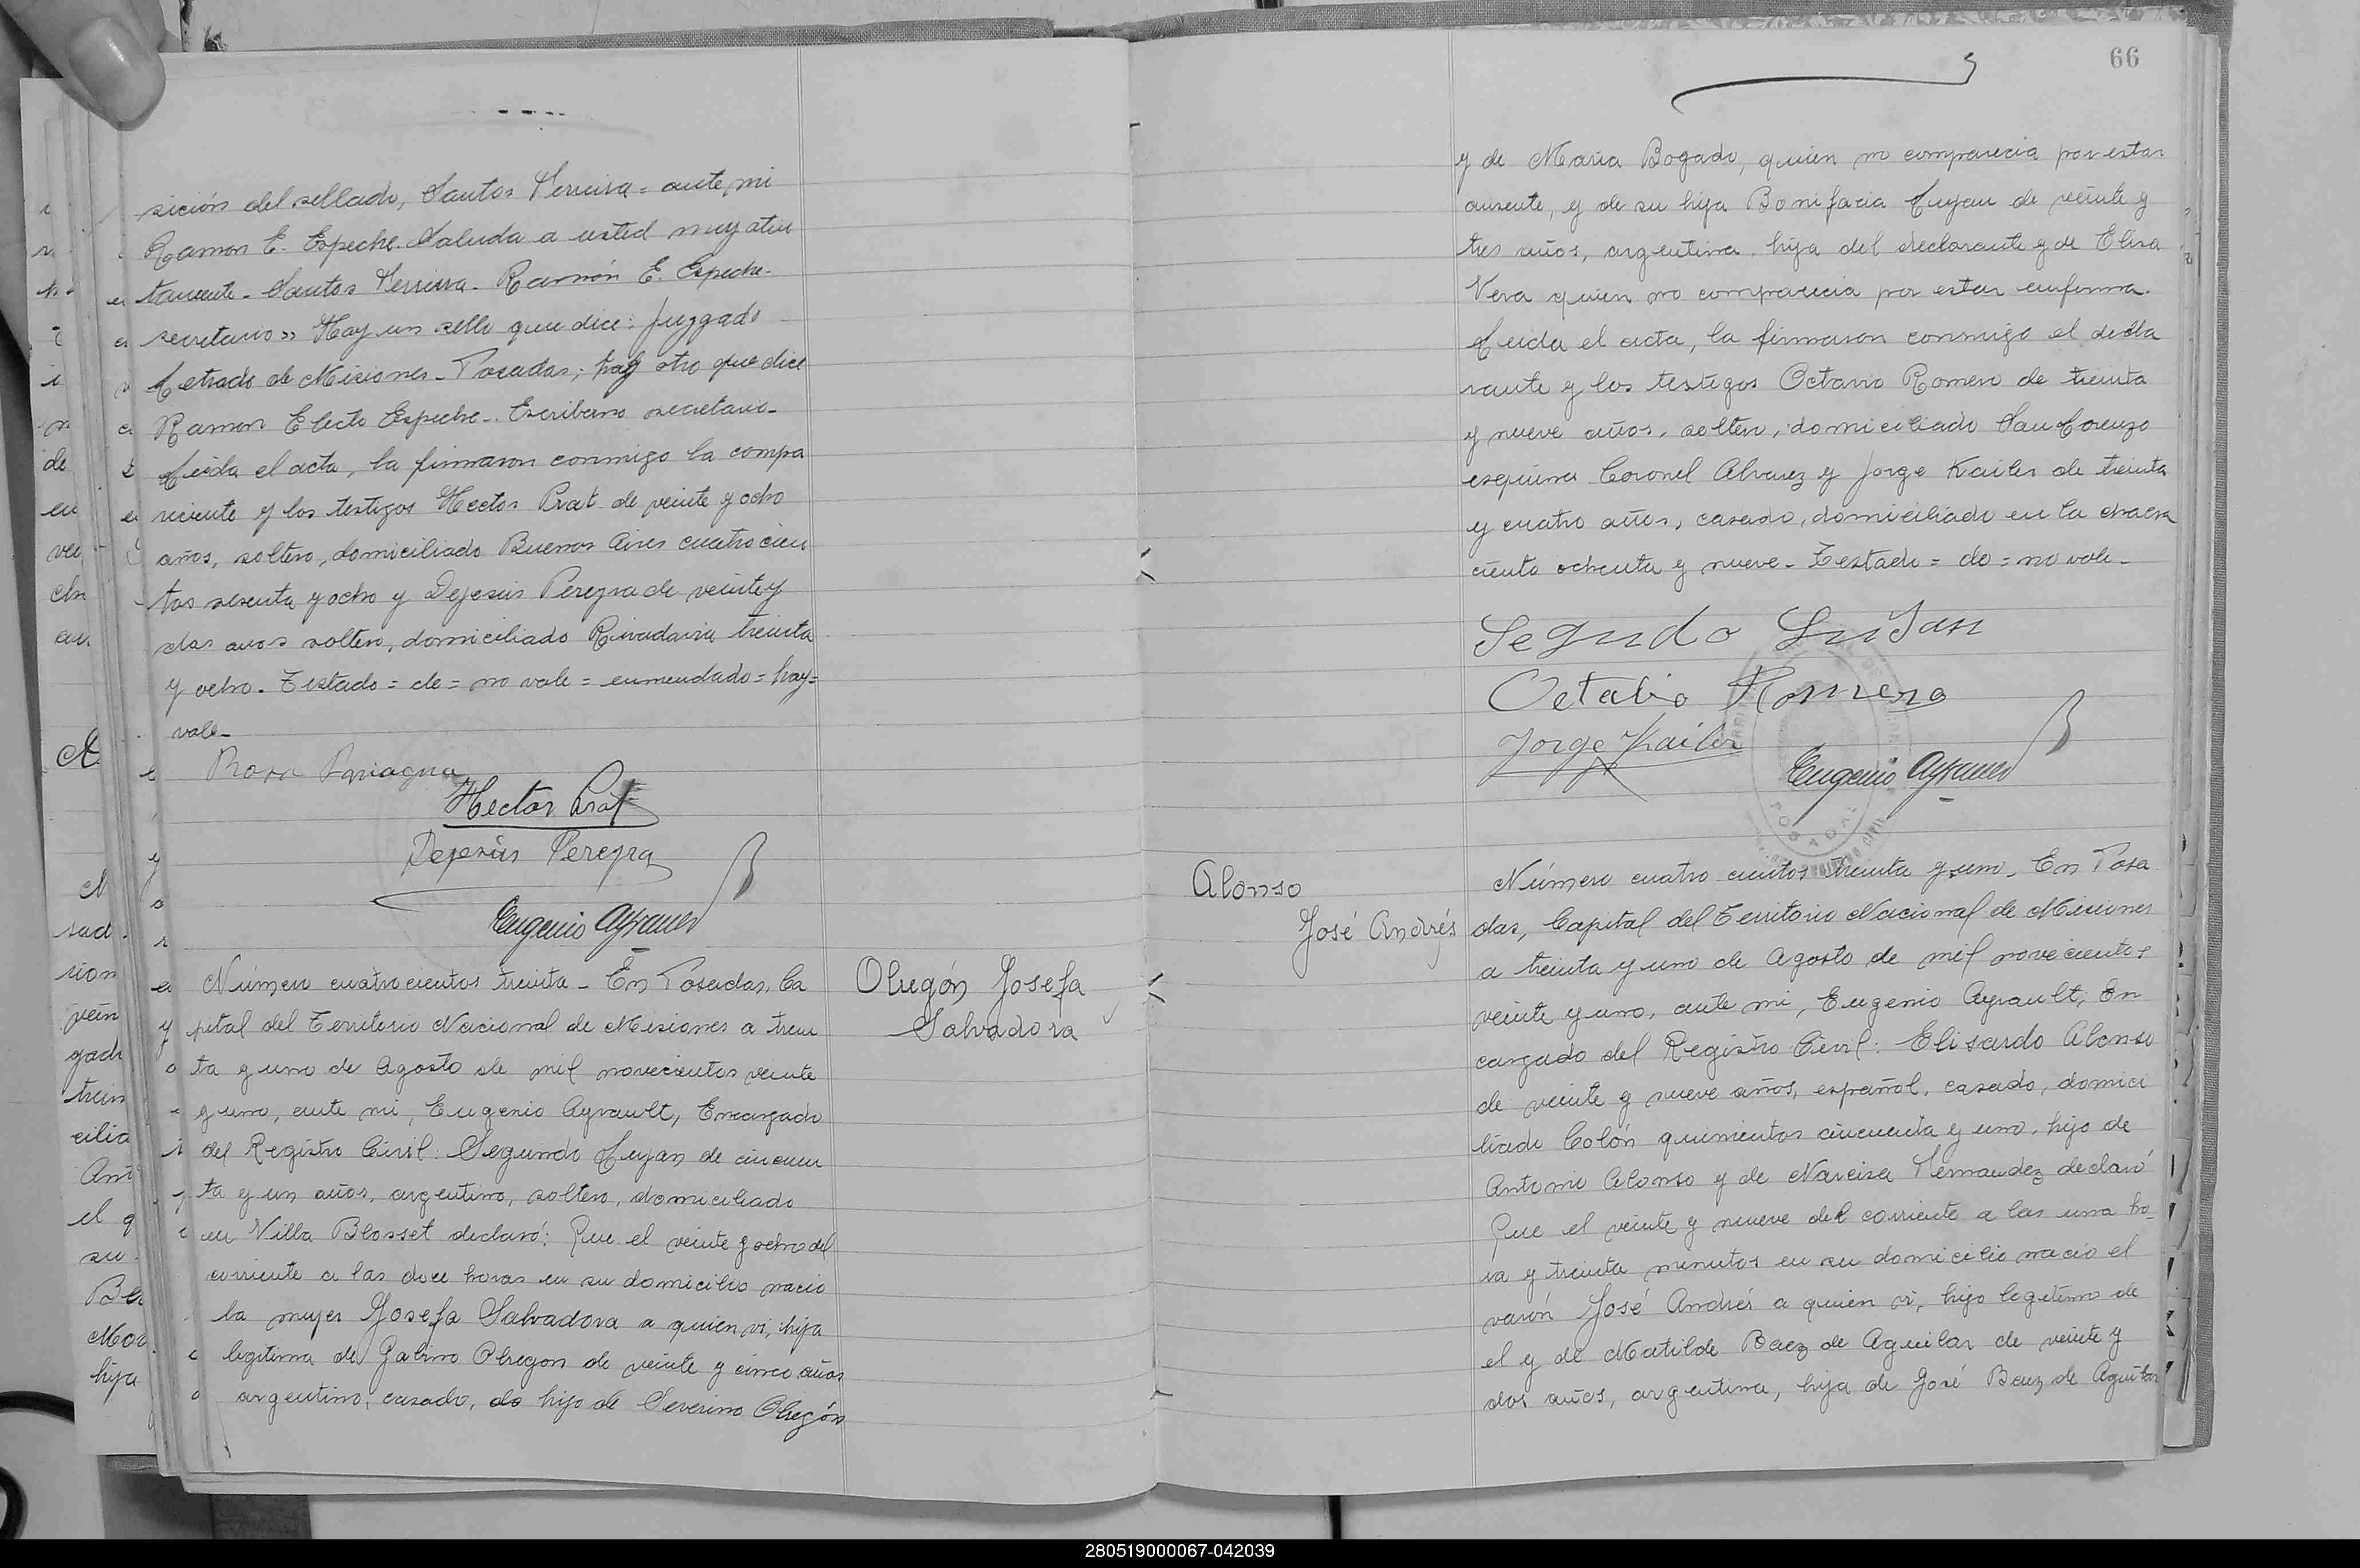 sición del sellado, Santos Ferreira = ante mi
Ramon E. Espeche. Saluda a usted muy aten
tamente - Santos Ferreira - Ramón E. Espeche.
secretario» Hay un sello que dice: Juzgado
Letrado de Misiones - Posadas; hay otro que dice
Ramon Electo Espeche -. Escribano secretario -
Leida el acta, la firmaron conmigo la compa
reciente y los testigos Hector Prat de veinte y ocho
años, soltero, domiciliado Buenos Aires cuatrocien
tos sesenta y ocho y Dejesús Pereyra de veinte y
dos anos soltero, domiciliado Rivadavia treinta
y ocho - Testado = de = no vale = enmendado = hay =
vale -
Rosa Paniagua
Hector Prat
Dejesús Pereyra
Eugenio Ayrault
Número cuatrocientos treinta - En Posadas, Ca
pital del Territorio Nacional de Misiones a trein
ta y uno de Agosto de mil novecientos veinte
y uno, ante mi, Eugenio Ayrault, Encargado
del Registro Civil: Segundo Lujan de cincuen
ta y un años, argentino, soltero, domiciliado
en Villa Blosset declaró: Que el veinte y ocho del
corriente a las doce horas en su domicilio nacio
la mujer Josefa Salvadora a quien vi, hija
legitima de Gabino Obregon de veinte y cinco años
argentino, casado, do hijo de Severino Obregón
Obregón Josefa
Salvadora
66
y de Maria Bogado, quien no comparecia por estar
ausente, y de su hija Bonifacia Lujan de veinte y
tres años, argentina, hija del declarante y de Elisa
Vera quien no comparecia por estar enferma.
Leida el acta, la firmaron conmigo el decla
rante y los testigos Octavio Romero de treinta
y nueve años, soltero, domiciliado San Lorenzo
esquina Coronel Alvarez y Jorge Kailer de treinta
y cuatro años, casado, domiciliado en la chacra
ciento ochenta y nueve - Testado = do = no vale -
Segundo Lujan
Octabio Romero
Jorge Kailer
Eugenio Ayrault
Alonso
José Andrés
Número cuatro cientos treinta y uno - En Posa
das, Capital del Territorio Nacional de Misiones
a treinta y uno de Agosto de mil novecientos
veinte y uno, ante mi, Eugenio Ayrault, En
cargado del Registro Civil: Elisardo Alonso
de veinte y nueve años, español, casado, domici
liado Colón quinientos cincuenta y uno, hijo de
Antonio Alonso y de Narcisa Fernandez declaró
Que el veinte y nueve del corriente a las una ho-
ra y treinta minutos en su domicilio nacio el
varón José Andrés a quien vi, hijo legitimo de
el y de Matilde Baez de Aguilar de veinte y
dos años, argentina, hija de José Baez de Aguilar
280519000067-042039